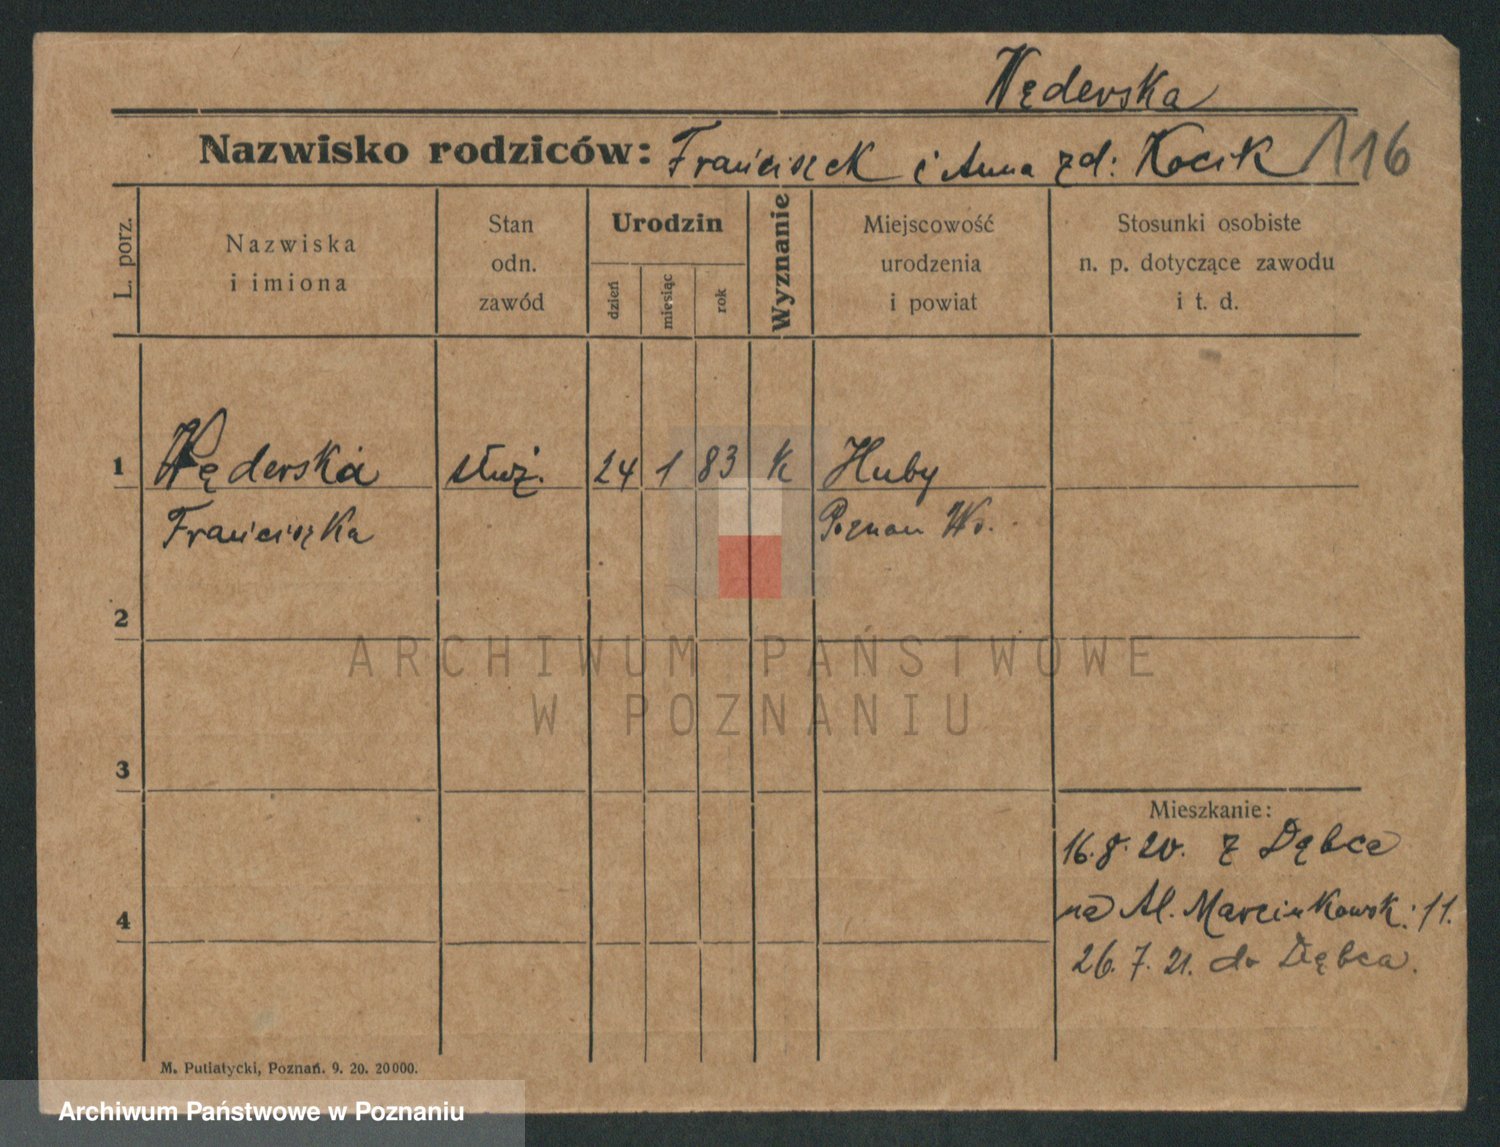 Węderska
Nazwisko rodziców: Franciszek i Anna zd: Kocik 116
L. porz.
Nazwiska
i imiona
Stan
odn.
zawód
Urodzin
dzień
miesiąc
rok
Wyznanie
Miejscowość
urodzenia
i powiat
Stosunki osobiste
n. p. dotyczące zawodu
i t. d.
1 Węderska służ. 24 1 83 k Huby
Franciszka Poznan Ws.
2
ARCHIWUM PAŃSTWOWE
W POZNANIU
3
Mieszkanie:
16.8.20. z Dębca
4
na Al. Marcinkowsk. 11.
26.7.21. do Dębca.
M. Putiatycki, Poznań. 9. 20. 20000.
Archiwum Państwowe w Poznaniu